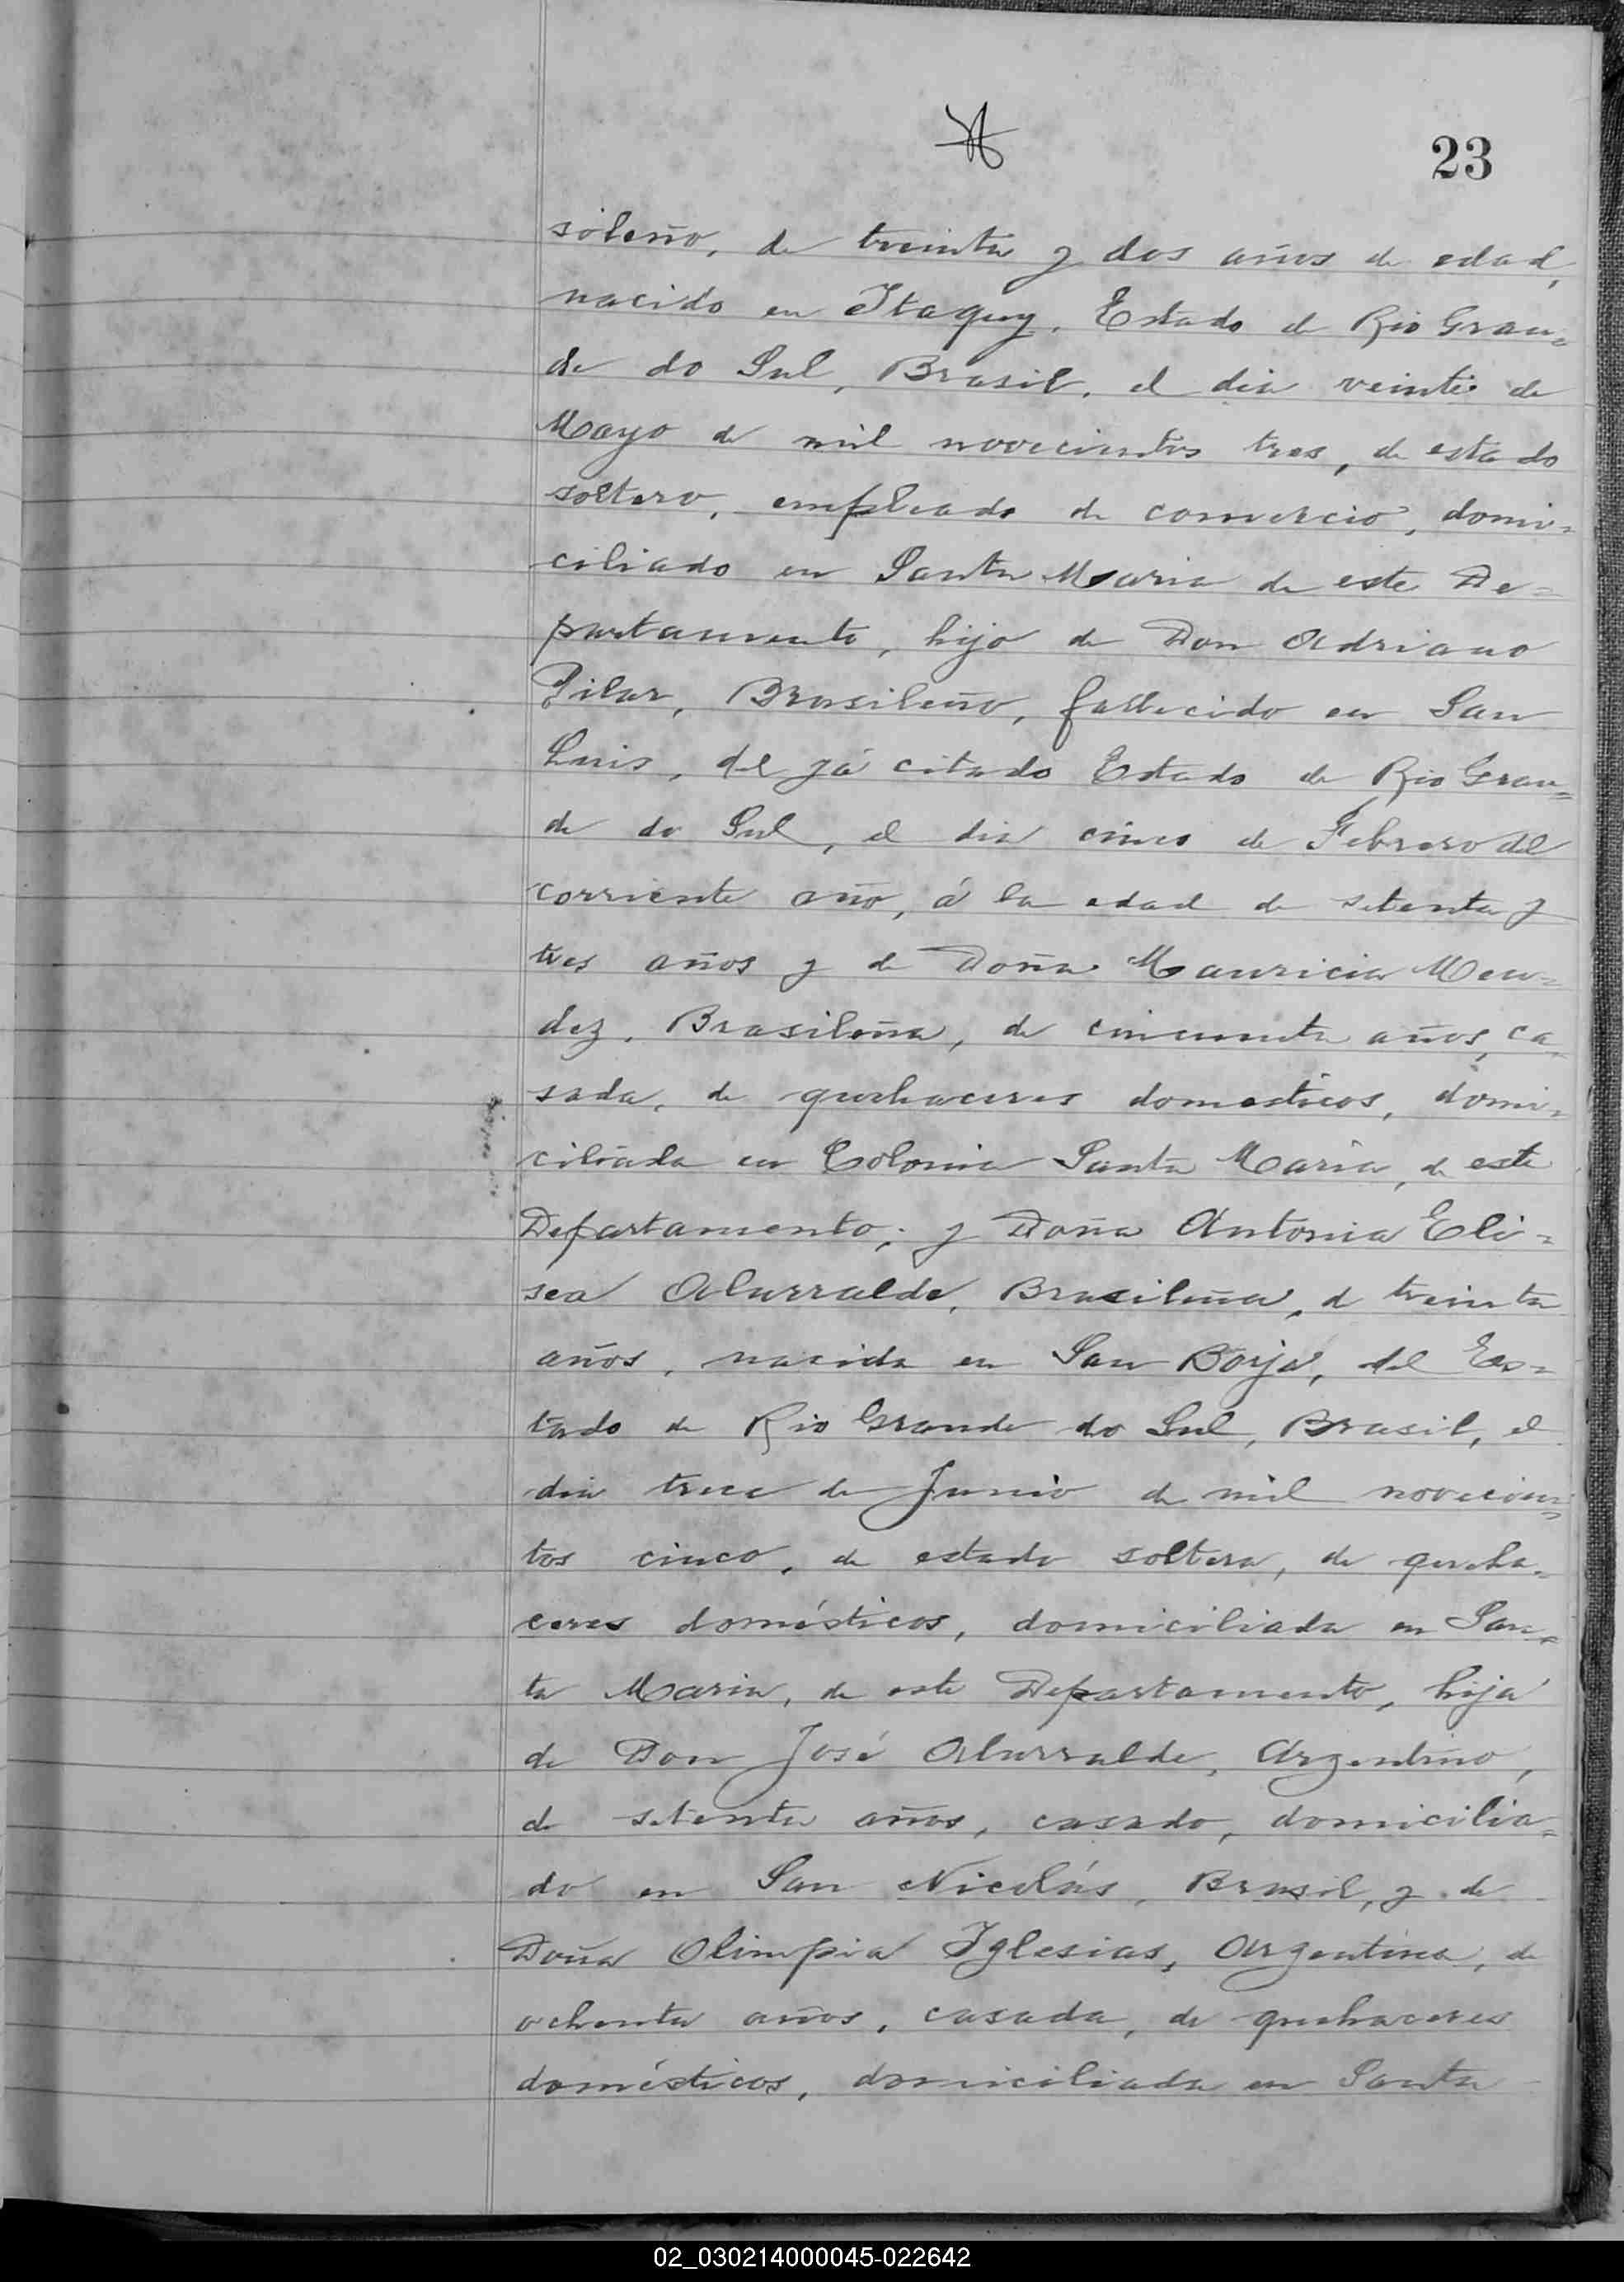 23
sileño, de treinta y dos años de edad,
nacido en Itaquy, Estado de Rio Gran=
de do Sul, Brasil, el dia veinte de
Mayo de mil novecientos tres, de estado
soltero, empleado de comercio, domi=
ciliado en Santa Maria de este De=
partamento, hijo de Don Adriano
Pilar, Brasileño, fallecido en San
Luis, del yá citado Estado de Rio Gran=
de do Sul, el dia cinco de Febrero del
corriente año, á la edad de setenta y
tres años y de Doña Mauricia Men=
dez, Brasileña, de cincuenta años, ca=
sada, de quehaceres domesticos, domi=
ciliada en Colonia Santa Maria, de este
Departamento; y Doña Antonia Eli=
sea Alurralde, Brasileña, de treinta
años, nacida en San Borja, del Es=
tado de Rio Grande do Sul, Brasil, el
dia trece de Junio de mil novecien=
tos cinco, de estado soltera, de queha=
ceres domésticos, domiciliada en San=
ta Maria, de este Departamento, hija
de Don José Alurralde, Argentino,
de setenta años, casado, domicilia=
do en San Nicolás, Brasil, y de
Doña Olimpia Iglesias, Argentina, de
ochenta años, casada, de quehaceres
domésticos, domiciliada en Santa
02_030214000045-022642